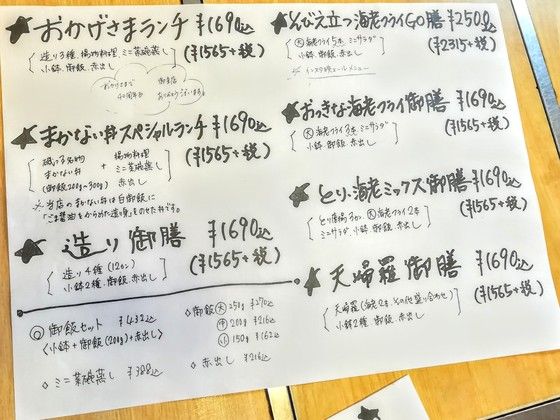 ★おかげさまランチ ¥1690込
(¥1565+税)
造り3種 揚物料理 ミニ茶碗蒸し
小鉢 御飯 赤出し
おかげさまで
40周年
御来店
ありがとうございます
★まかない丼スペシャルランチ ¥1690込
(¥1565+税)
磯いろ名物
まかない丼
(御飯200g〜300g)
+
揚物料理
ミニ茶碗蒸し
赤出し
☆当店のまかない丼は白御飯に
"ごま醤油"をからめた造り身をのせた丼です。
★造り御膳 ¥1690込
(¥1565+税)
造り4種(12カン)
小鉢2種 御飯 赤出し
◎御飯セット ¥432込
〈小鉢+御飯(200g)+赤出し〉
◇ミニ茶碗蒸し ¥388込
◇御飯 大 250g ¥270込
中 200g ¥216込
小 150g ¥162込
◇赤出し ¥216込
★そびえ立つ海老フライGO膳 ¥2500込
(¥2315+税)
大海老フライ5本 ミニサラダ
小鉢 御飯 赤出し
☆インスタ映えールメニュー
★おっきな海老フライ御膳 ¥1690込
(¥1565+税)
大海老フライ3本 ミニサラダ
小鉢 御飯 赤出し
★とり、海老ミックス御膳 ¥1690込
(¥1565+税)
とり唐揚3カン、大海老フライ2本
ミニサラダ 小鉢 御飯 赤出し
★天婦羅御膳 ¥1690込
(¥1565+税)
天婦羅(海老2本、その他盛り合わせ)
小鉢2種 御飯 赤出し